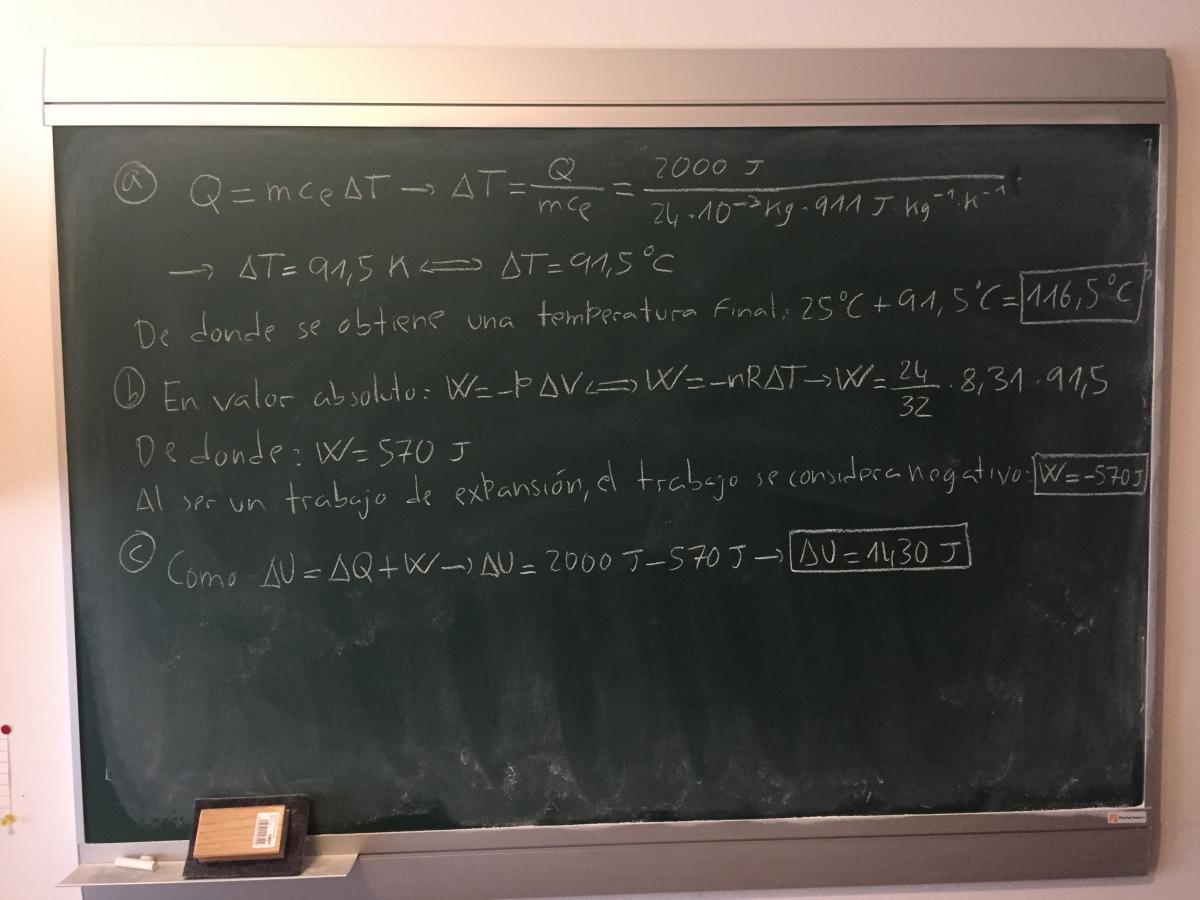 a) Q = mcₑ ΔT → ΔT = Q/mcₑ = 2000 J / 24·10⁻³ Kg · 911 J · Kg⁻¹·K⁻¹
→ ΔT = 91,5 K ⟺ ΔT = 91,5 °C
De donde se obtiene una temperatura final: 25°C + 91,5°C = 116,5°C
b) En valor absoluto: W = -p ΔV ⟺ W = -nRΔT → W = 24/32 · 8,31 · 91,5
De donde: W = 570 J
Al ser un trabajo de expansión, el trabajo se considera negativo: W = -570 J
c) Como ΔU = ΔQ + W → ΔU = 2000 J - 570 J → ΔU = 1430 J